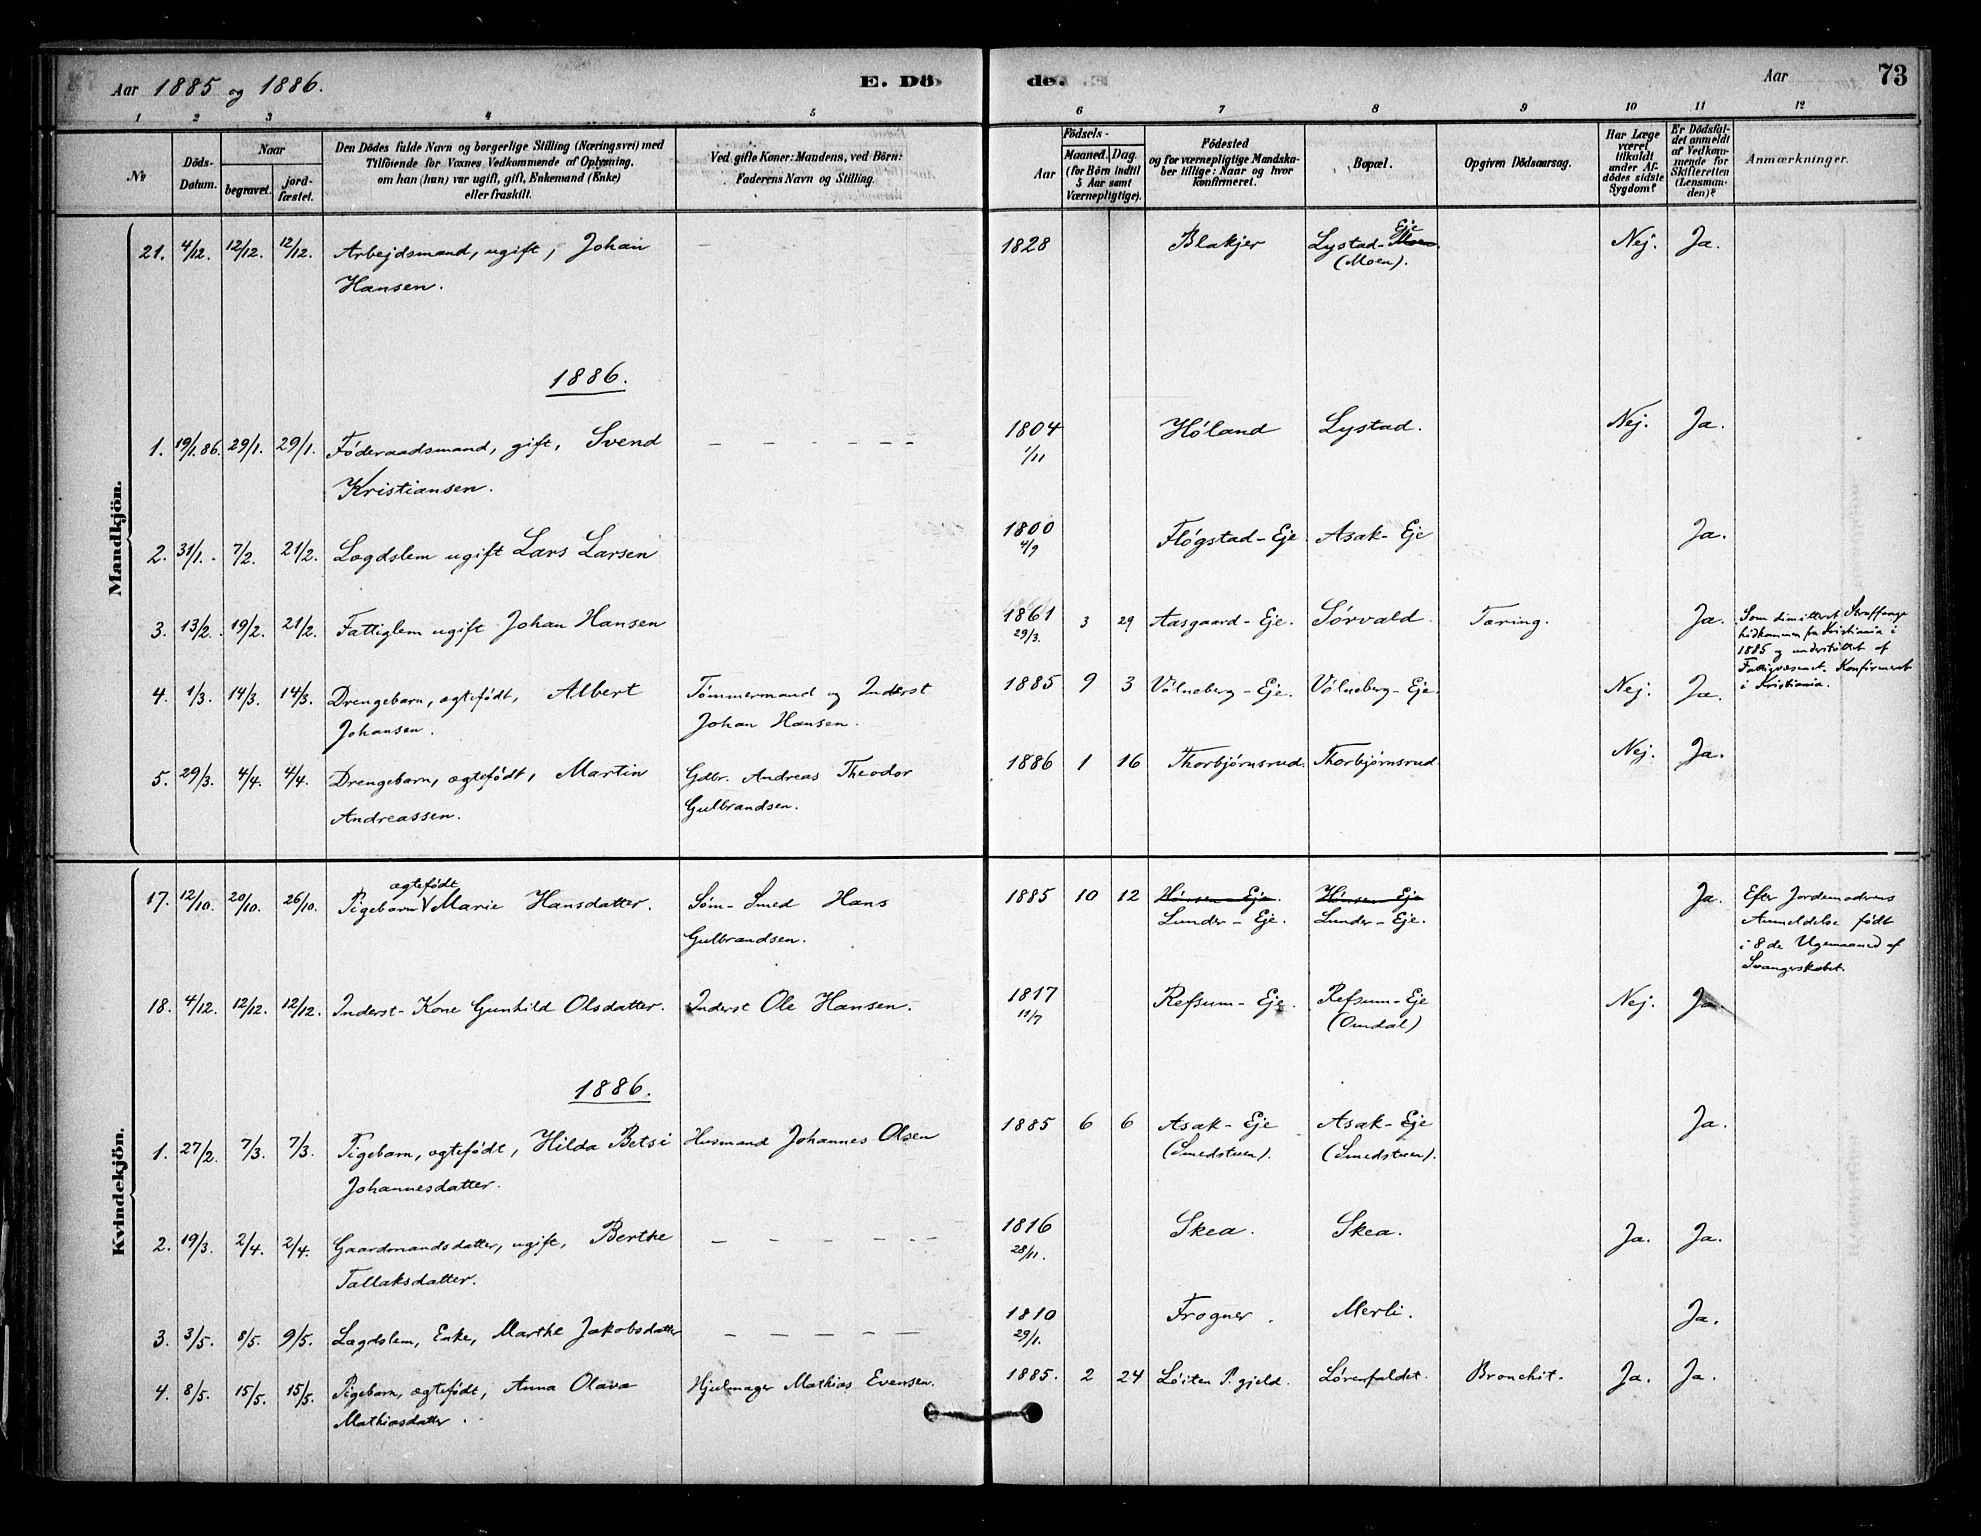 Aar 1885 og 1886. E. Döde. Aar 73
1 2 3 4 5 6 7 8 9 10 11 12
No
Döds-Datum.
Naar begravet. jordfæstet.
Den Dödes fulde Navn og borgerlige Stilling (Næringsvei) med
Tilföiende for Voxnes Vedkommende af Oplysning,
om han (hun) var ugift, gift, Enkemand (Enke)
eller fraskilt.
Ved gifte Koner: Mandens, ved Börn:
Faderens Navn og Stilling.
Födsels-
Aar Maaned. Dag.
(for Börn indtil
5 Aar samt
Værnepligtige).
Födested
og for værnepligtige Mandska-
ber tillige: Naar og hvor
konfirmeret.
Bopæl.
Opgiven Dödsaarsag.
Har Læge
været
tilkaldt
under Af-
dödes sidste
Sygdom?
Er Dödsfal-
det anmeldt
af Vedkom-
mende for
Skifteretten
(Lensman-
den)?
Anmærkninger.
Mandkjön.
21. 4/12. 12/12. 12/12. Arbejdsmand, ugift, Johan 1828 Blakjer Lystad-Eje Nej. Ja.
Hansen. (Moen).
1886.
1. 19/1.86. 29/1. 29/1. Föderaadsmand, gift, Svend — — — — — 1804 Höland Lystad. Nej. Ja.
Kristiansen. 1/11
2. 31/1. 7/2. 21/2. Lægdslem ugift Lars Larsen 1800 Flögstad-Eje Asak-Eje Ja.
4/9
3. 13/2. 19/2. 21/2. Fattiglem ugift Johan Hansen 1861 3 29 Aasgaard-Eje. Sörvald. Tæring. Ja. Som dimitteret Straffange
29/3. hidkommen fra Kristiania i
1885 og understöttet af
Fattigvæsenet. Konfirmeret
i Kristiania.
4. 1/3. 14/3. 14/3. Drengebarn, ægtefödt, Albert Tömmermand og Inderst 1885 9 3 Völneberg-Eje. Völneberg-Eje. Nej. Ja.
Johansen. Johan Hansen.
5. 29/3. 4/4. 4/4. Drengebarn, ægtefödt, Martin Gdbr. Andreas Theodor 1886 1 16 Thorbjörnsrud. Thorbjörnsrud. Nej. Ja.
Andreassen. Gulbrandsen.
Kvindekjön.
17. 12/10. 20/10. 26/10. Pigebarn ægtefödt Marie Hansdatter. Söm-Smed Hans 1885 10 12 Hönsen-Eje. Hönsen-Eje Ja. Efter Jordemoderens
Gulbrandsen. Lunder-Eje. Lunder-Eje. Anmeldelse födt
i 8de Ugemaaned af
Svangerskabet.
18. 4/12. 12/12. 12/12. Inderst-Kone Gunhild Olsdatter. Inderst Ole Hansen. 1817 Refsum-Eje. Refsum-Eje Nej. Ja.
11/7 (Omdal)
1886.
1. 27/2. 7/3. 7/3. Pigebarn, ægtefödt, Hilda Betsi Husmand Johannes Olsen 1885 6 6 Asak-Eje Asak-Eje Ja.
Johannesdatter. (Smedstuen). (Smedstuen).
2. 19/3. 2/4. 2/4. Gaardmandsdatter, ugift, Berthe — — — — — 1816 Skea. Skea. Ja. Ja.
Tallaksdatter. 28/11.
3. 3/5. 8/5. 9/5. Lægdslem, Enke, Marthe Jakobsdatter — — — — — 1810 Frogner. Merli. Ja.
29/1.
4. 8/5. 15/5. 15/5. Pigebarn, ægtefödt, Anna Olava Hjulmager Mathias Evensen. 1885. 2 24 Löiten P.gjeld. Lörenfaldet. Bronchit. Ja. Ja.
Mathiasdatter.